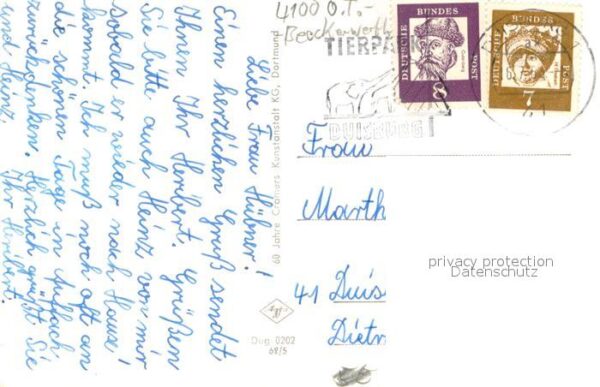 Liebe Frau Hübner!
Einen herzlichen Gruß sendet
Ihnen Ihr Heribert. Grüßen
Sie bitte auch Heinz von mir
sobald er wieder nach Hause
kommt. Ich muß noch oft an
die schönen Tage in
zurückdenken. Herzlich grüßt Sie
und Heinz. Ihr Heribert.
60 Jahre Cramers Kunstanstalt KG, Dortmund
Dug 0202
68/5
4100 O.T.-
Beeckerwerth
TIERPARK
DUISBURG
DEUTSCHE
BUNDES
POST
8
DEUTSCHE
BUNDES
POST
7
Frau
Marth
41 Duis
Dietr
privacy protection
Datenschutz